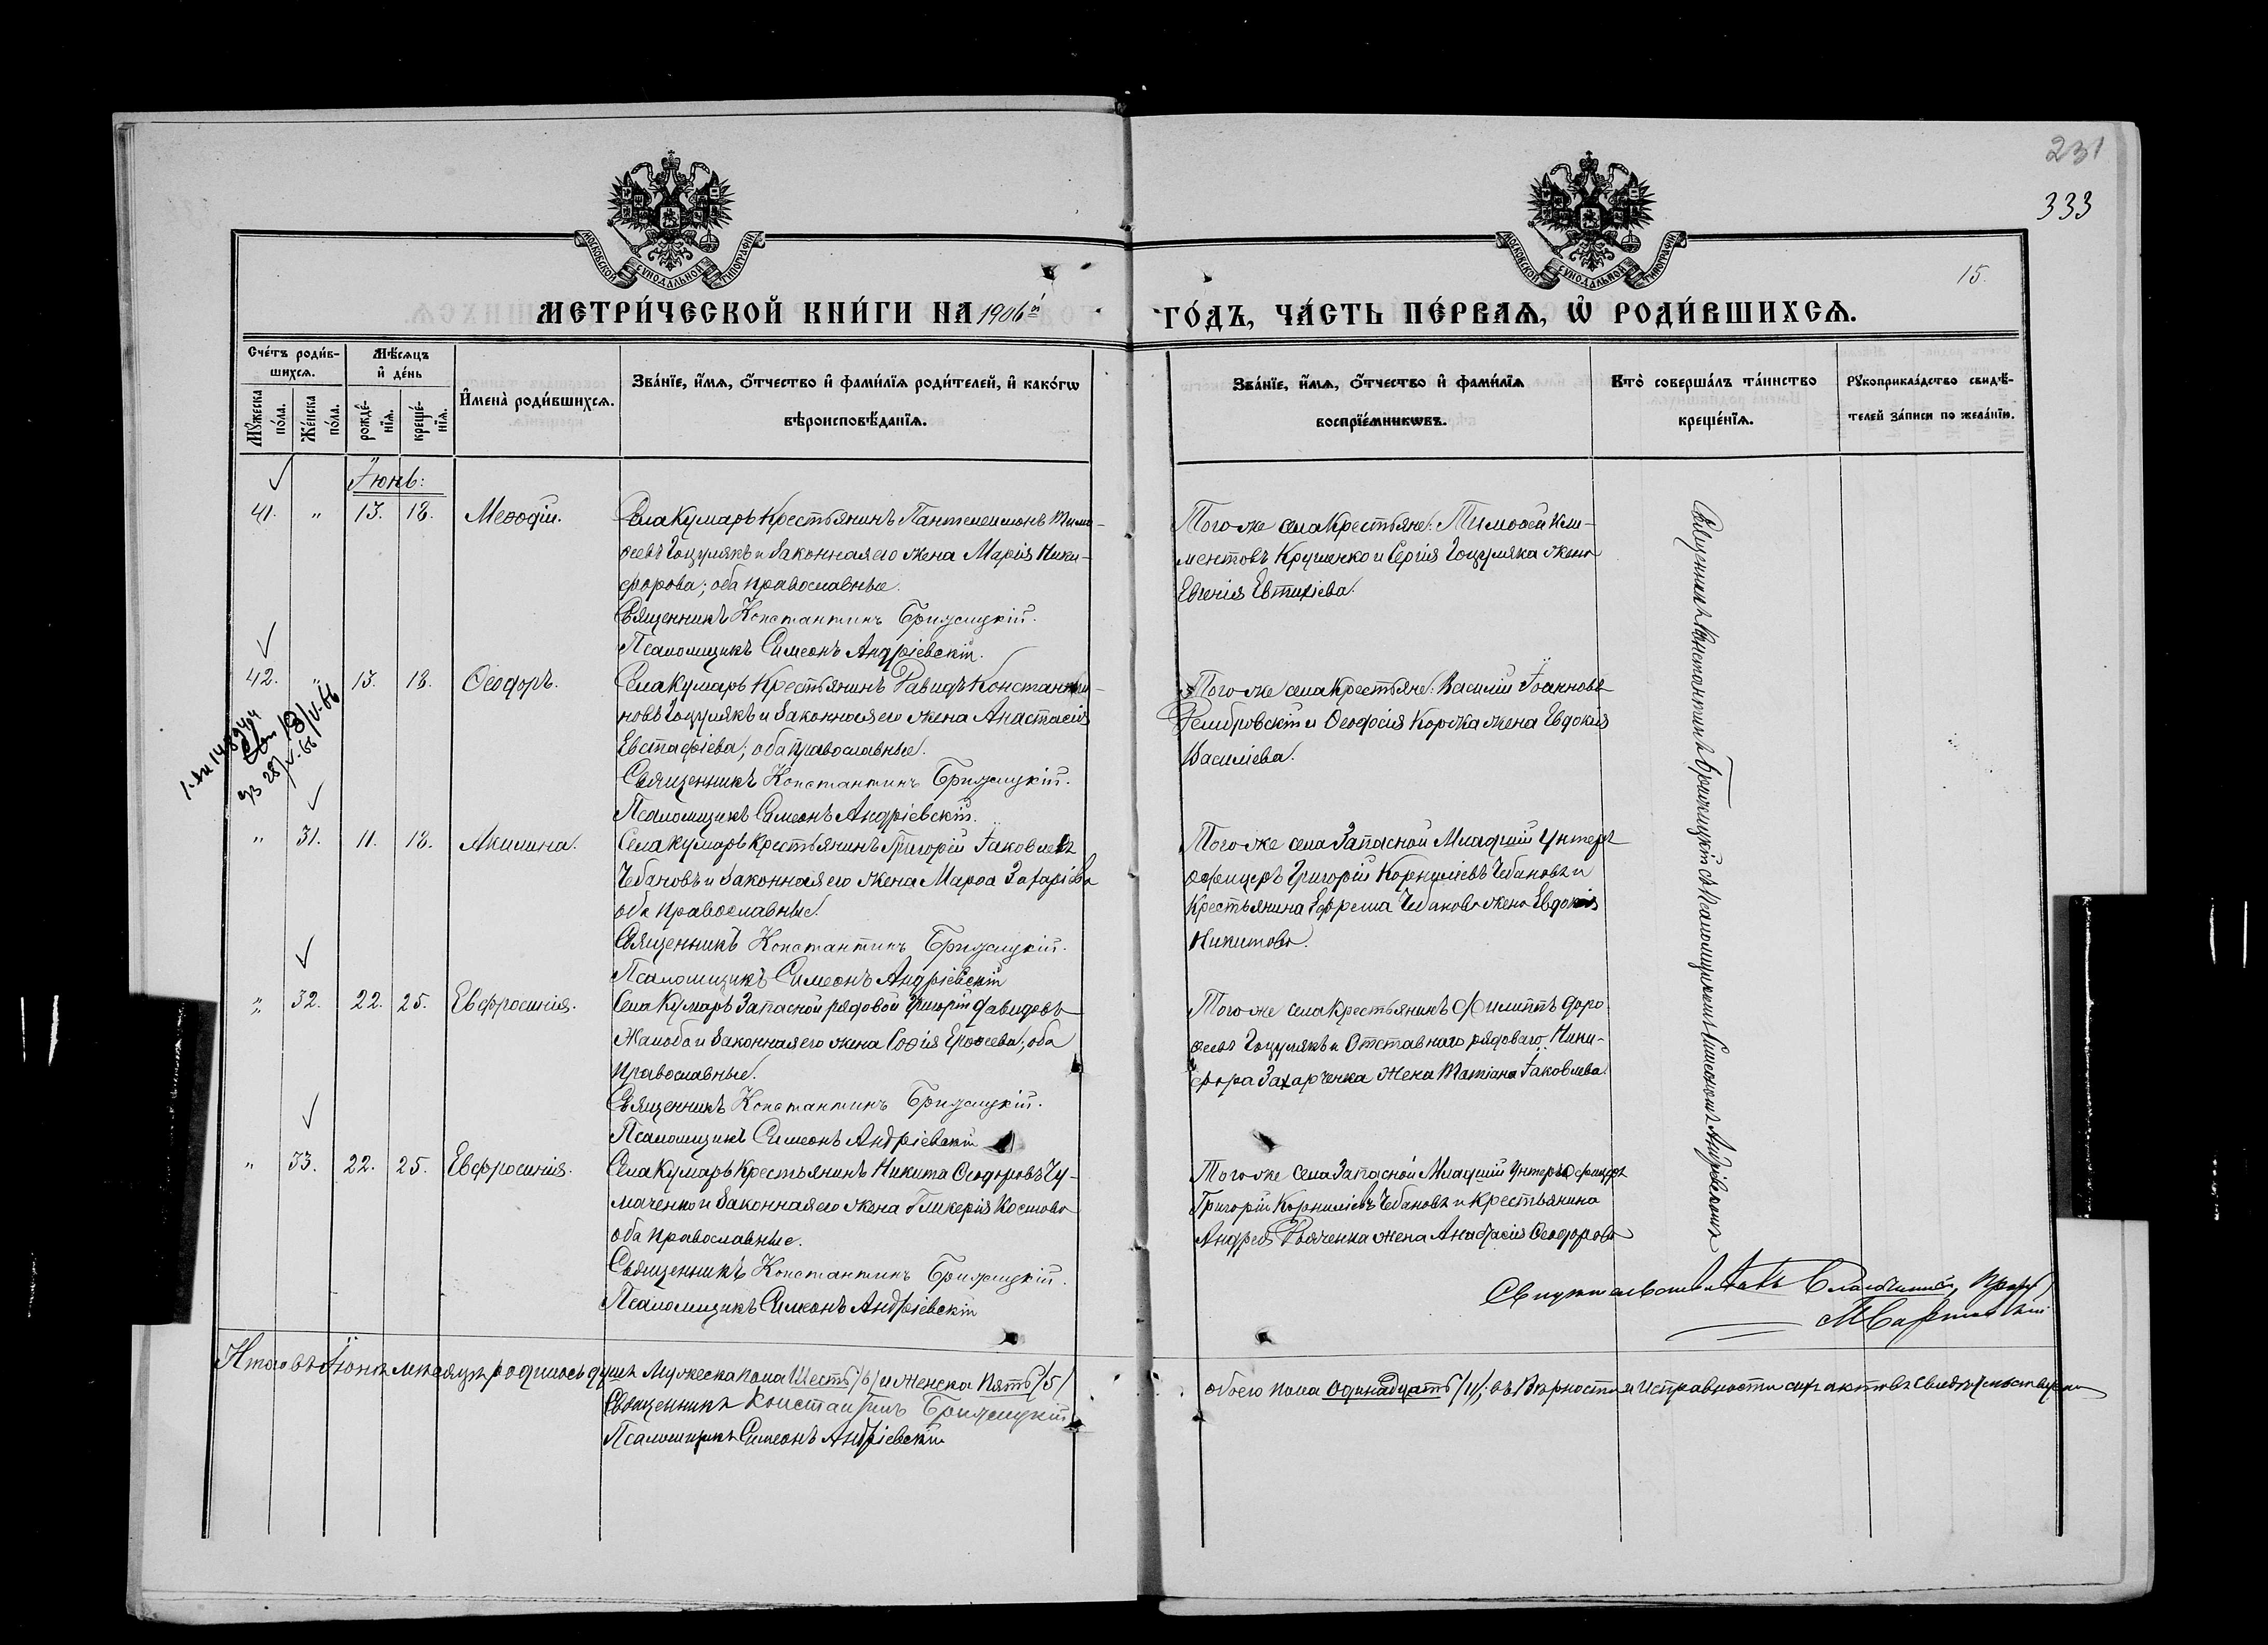 231
333
15.
МОСКОВСКОЙ СѴНОДАЛЬНОЙ ТИПОГРАФІИ
МОСКОВСКОЙ СѴНОДАЛЬНОЙ ТИПОГРАФІИ
МЕТРИ́ЧЕСКОЙ КНИ́ГИ НА 1906й
ГО́ДЪ, ЧА́СТЬ ПЕ́РВАѦ, Ѡ РОДИ́ВШИХСѦ.
Сче́тъ роди́в-
шихсѧ.
Мꙋ́жеска по́ла.
Же́нска по́ла.
Мѣ́сѧцъ
и҆ де́нь
рожде́-нїѧ.
креще́-нїѧ.
И҆мена̀ роди́вшихсѧ.
Зва́нїе, и҆́мѧ, ѻ҆́тчество и҆ фами́лїѧ роди́телей, и҆ како́гѡ
вѣроисповѣ́данїѧ.
Зва́нїе, и҆́мѧ, ѻ҆́тчество и҆ фами́лїѧ
воспрїе́мникѡвъ.
Кто̀ соверша́лъ та́инство
креще́нїѧ.
Рꙋкоприкла́дство свидѣ́-
телей за́писи по жела́нїю.
Іюнь:
41. " 13. 18. Меѳодій. Села Кумаръ Крестьянинъ Пантелеимонъ Тимо-
ѳеевъ Гоцулякъ и законная его жена Марія Ники-
форова; оба православные.
Священникъ Константинъ Брижицкій.
Псаломщикъ Симеонъ Андріевскій.
Того же села Крестьяне: Тимоѳей Кли-
ментовъ Крушенко и Сергія Гоцуляка жена
Евгенія Евтихіева.
42. " 13. 18. Ѳеодоръ. Села Кумаръ Крестьянинъ Давидъ Константи-
новъ Гоцулякъ и законная его жена Анастасія
Евстафіева; оба православные.
Священникъ Константинъ Брижицкій.
Псаломщикъ Симеонъ Андріевскій.
Того же села Крестьяне: Василій Іоанновъ
Дембровскій и Ѳеодосія Коржа жена Евдокія
Василіева.
" 31. 11. 18. Акилина. Села Кумаръ Крестьянинъ Григорій Іаковлевъ
Чебановъ и законная его жена Марѳа Захаріева
оба православные.
Священникъ Константинъ Брижицкій.
Псаломщикъ Симеонъ Андріевскій
Того же села Запасной Младшій Унтеръ
офицеръ Григорій Корниліевъ Чебановъ и
Крестьянина Ефрема Чебанова жена Евдокія
Никитова.
" 32. 22. 25. Евфросинія. Села Кумаръ Запасной рядовой Григорій Давидовъ
Жалоба и законная его жена Софія Ероѳеева; оба
православные.
Священникъ Константинъ Брижицкій.
Псаломщикъ Симеонъ Андріевскій
Того же села Крестьянинъ Филиппъ Доро-
ѳеевъ Гоцулякъ и Отставного рядового Ники-
фора Захарченка жена Татіана Іаковлева.
" 33. 22. 25. Евфросинія. Села Кумаръ Крестьянинъ Никита Ѳеодоровъ Чу-
маченко и законная его жена Гликерія Костова
оба православные.
Священникъ Константинъ Брижицкій.
Псаломщикъ Симеонъ Андріевскій
Того же села Запасной Младшій Унтеръ Офицеръ
Григорій Корниліевъ Чебановъ и Крестьянина
Андрея Дьяченка жена Анастасія Ѳеодорова
Священникъ Константинъ Брижицкій съ Псаломщикомъ Симеономъ Андріевскимъ
Благочинный,
Итого въ Іюнѣ мѣсяцѣ родилось душъ Мужеска пола Шесть /6/ и женска Пять /5/
обоего пола Одинадцать /11/; въ Вѣрности и Исправности сихъ актовъ Свидѣтельствуемъ
Священникъ Константинъ Брижицкій
Псаломщикъ Симеонъ Андріевскій